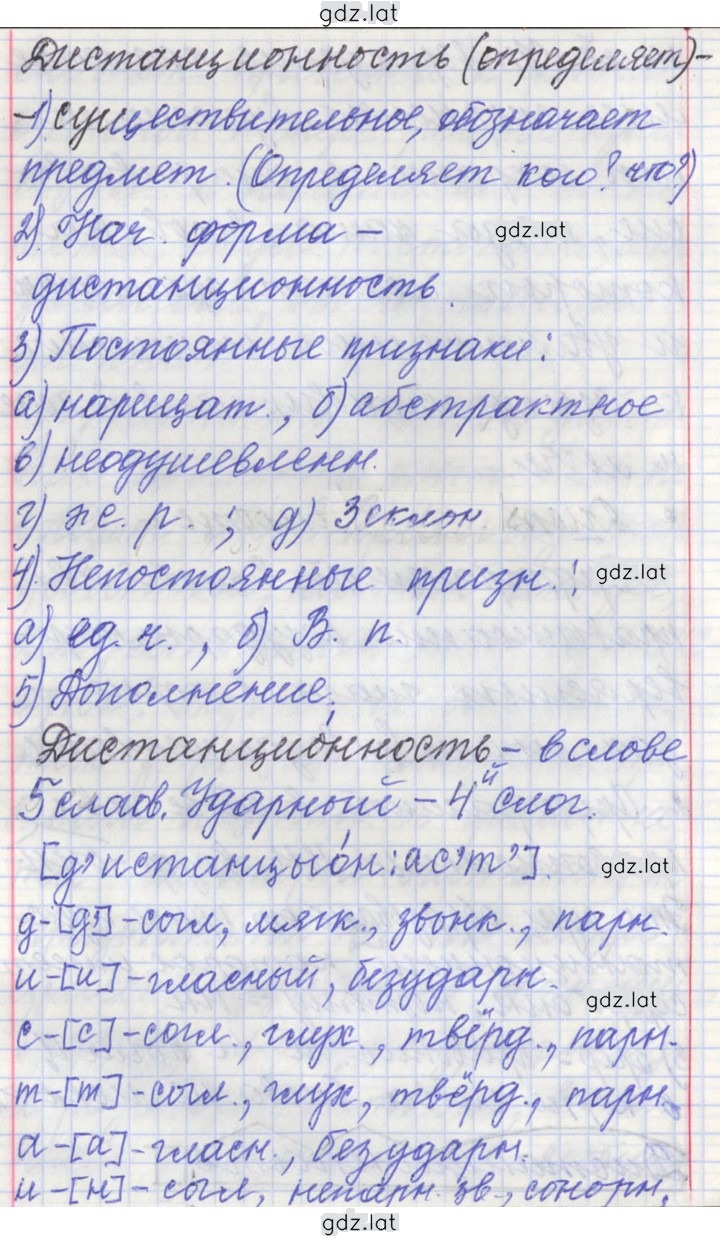 gdz.lat
Дистанционность (определяет)-
-1) существительное, обозначает
предмет. (Определяет кого? что?)
2). Нач. форма - gdz.lat
дистанционность.
3) Постоянные признаки:
а) нарицат., б) абстрактное
в) неодушевленн.
г) ж. р.; д) 3 склон.
4). Непостоянные призн.: gdz.lat
а) ед. ч., б) В. п.
5) Дополнение;
Дистанцио́нность - в слове
5 слаов. Ударный - 4й слог.
[д'истанцыо́н:ас'т']. gdz.lat
д-[д']-согл, мягк., звонк., парн.
и-[и]-гласный, безударн.
gdz.lat
с-[с]-согл., глух., твёрд., парн.
т-[т]-согл., глух, твёрд., парн.
а-[а]-гласн., безударн.
н-[н]-согл, непарн. зв., сонорн,
gdz.lat